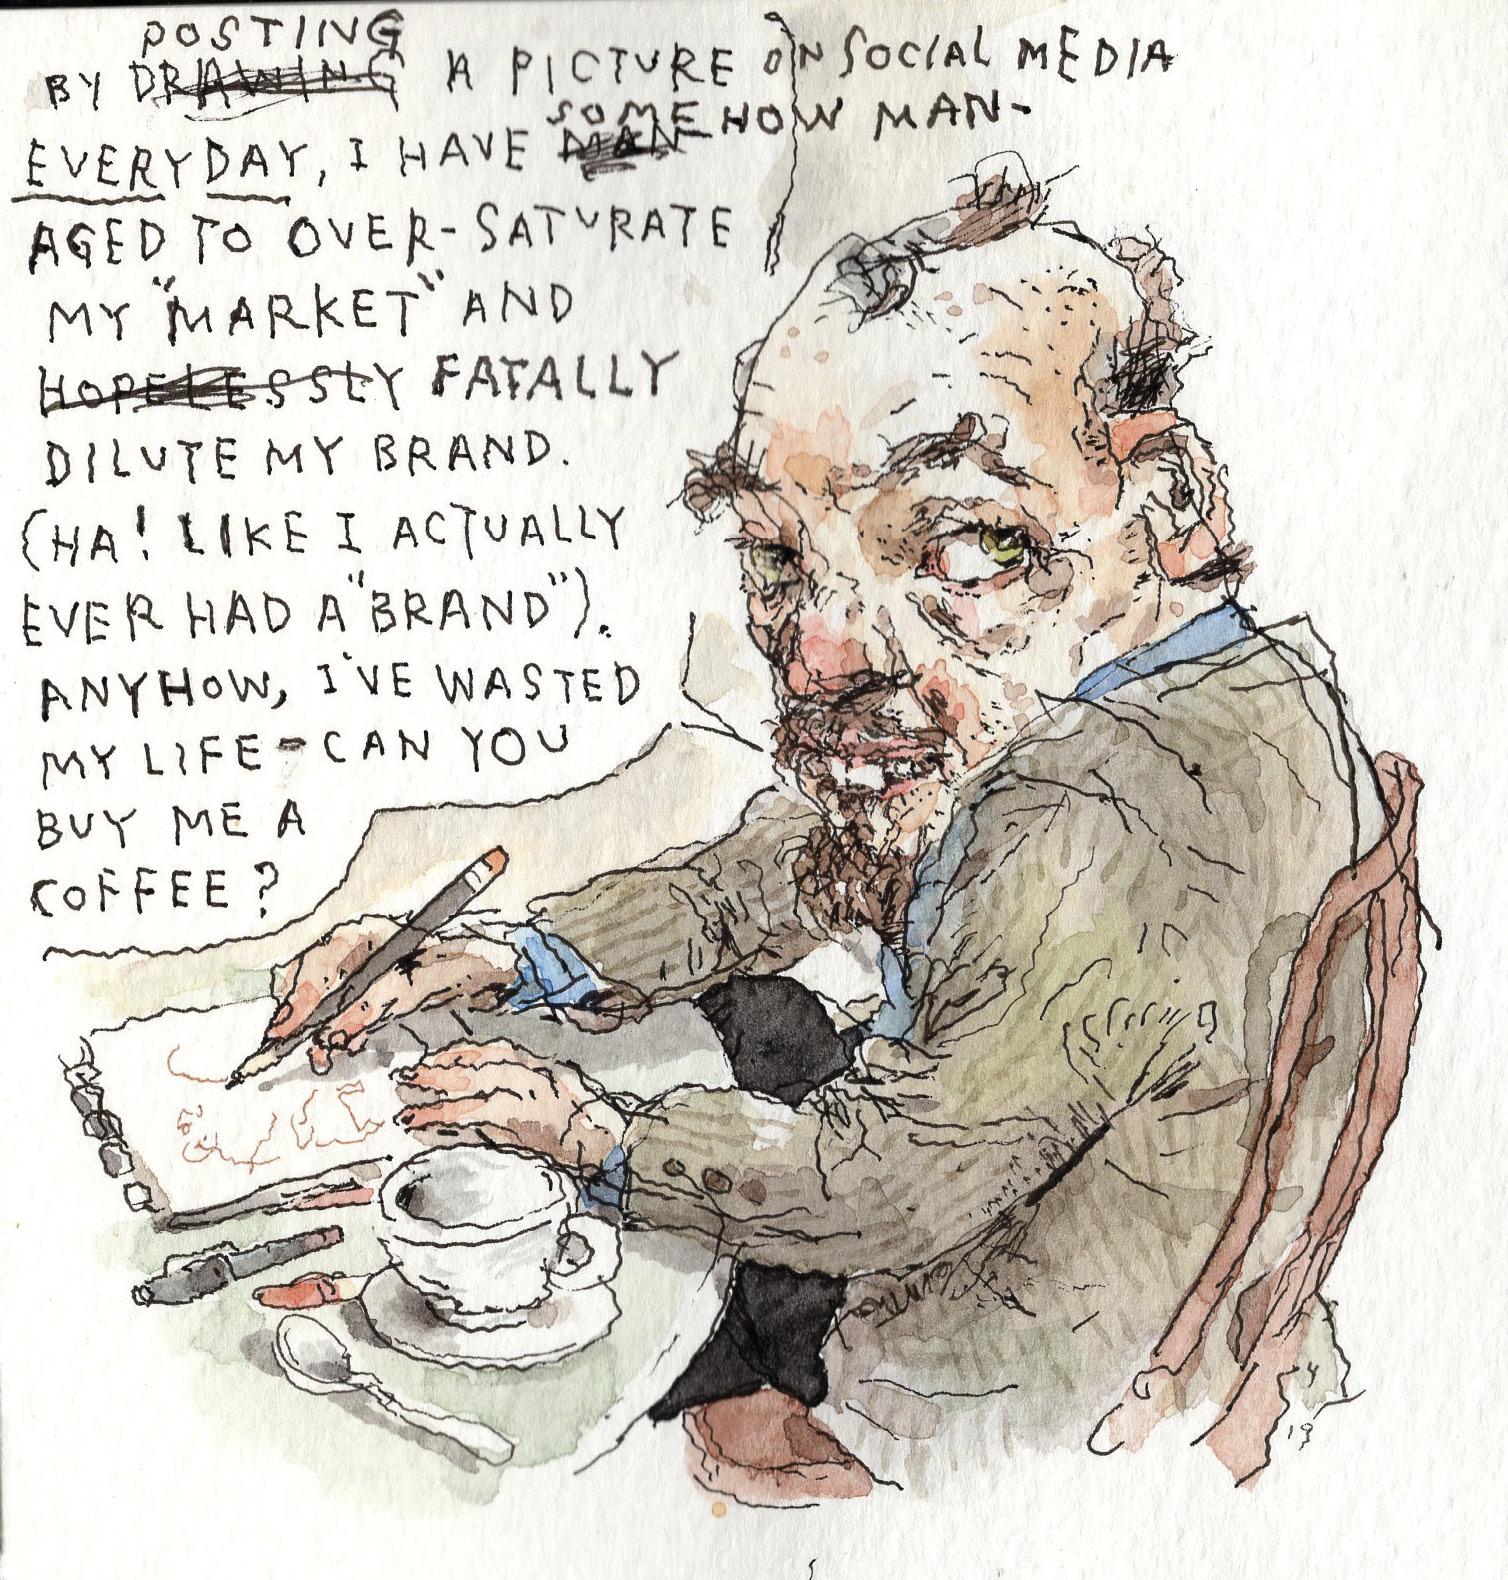 POSTING
BY DRAWING A PICTURE ON SOCIAL MEDIA
SOMEHOW MAN-
EVERYDAY, I HAVE MAN-
AGED TO OVER-SATURATE
MY "MARKET" AND
HOPELESSLY FATALLY
DILUTE MY BRAND.
(HA! LIKE I ACTUALLY
EVER HAD A "BRAND").
ANYHOW, I'VE WASTED
MY LIFE - CAN YOU
BUY ME A
COFFEE?
19